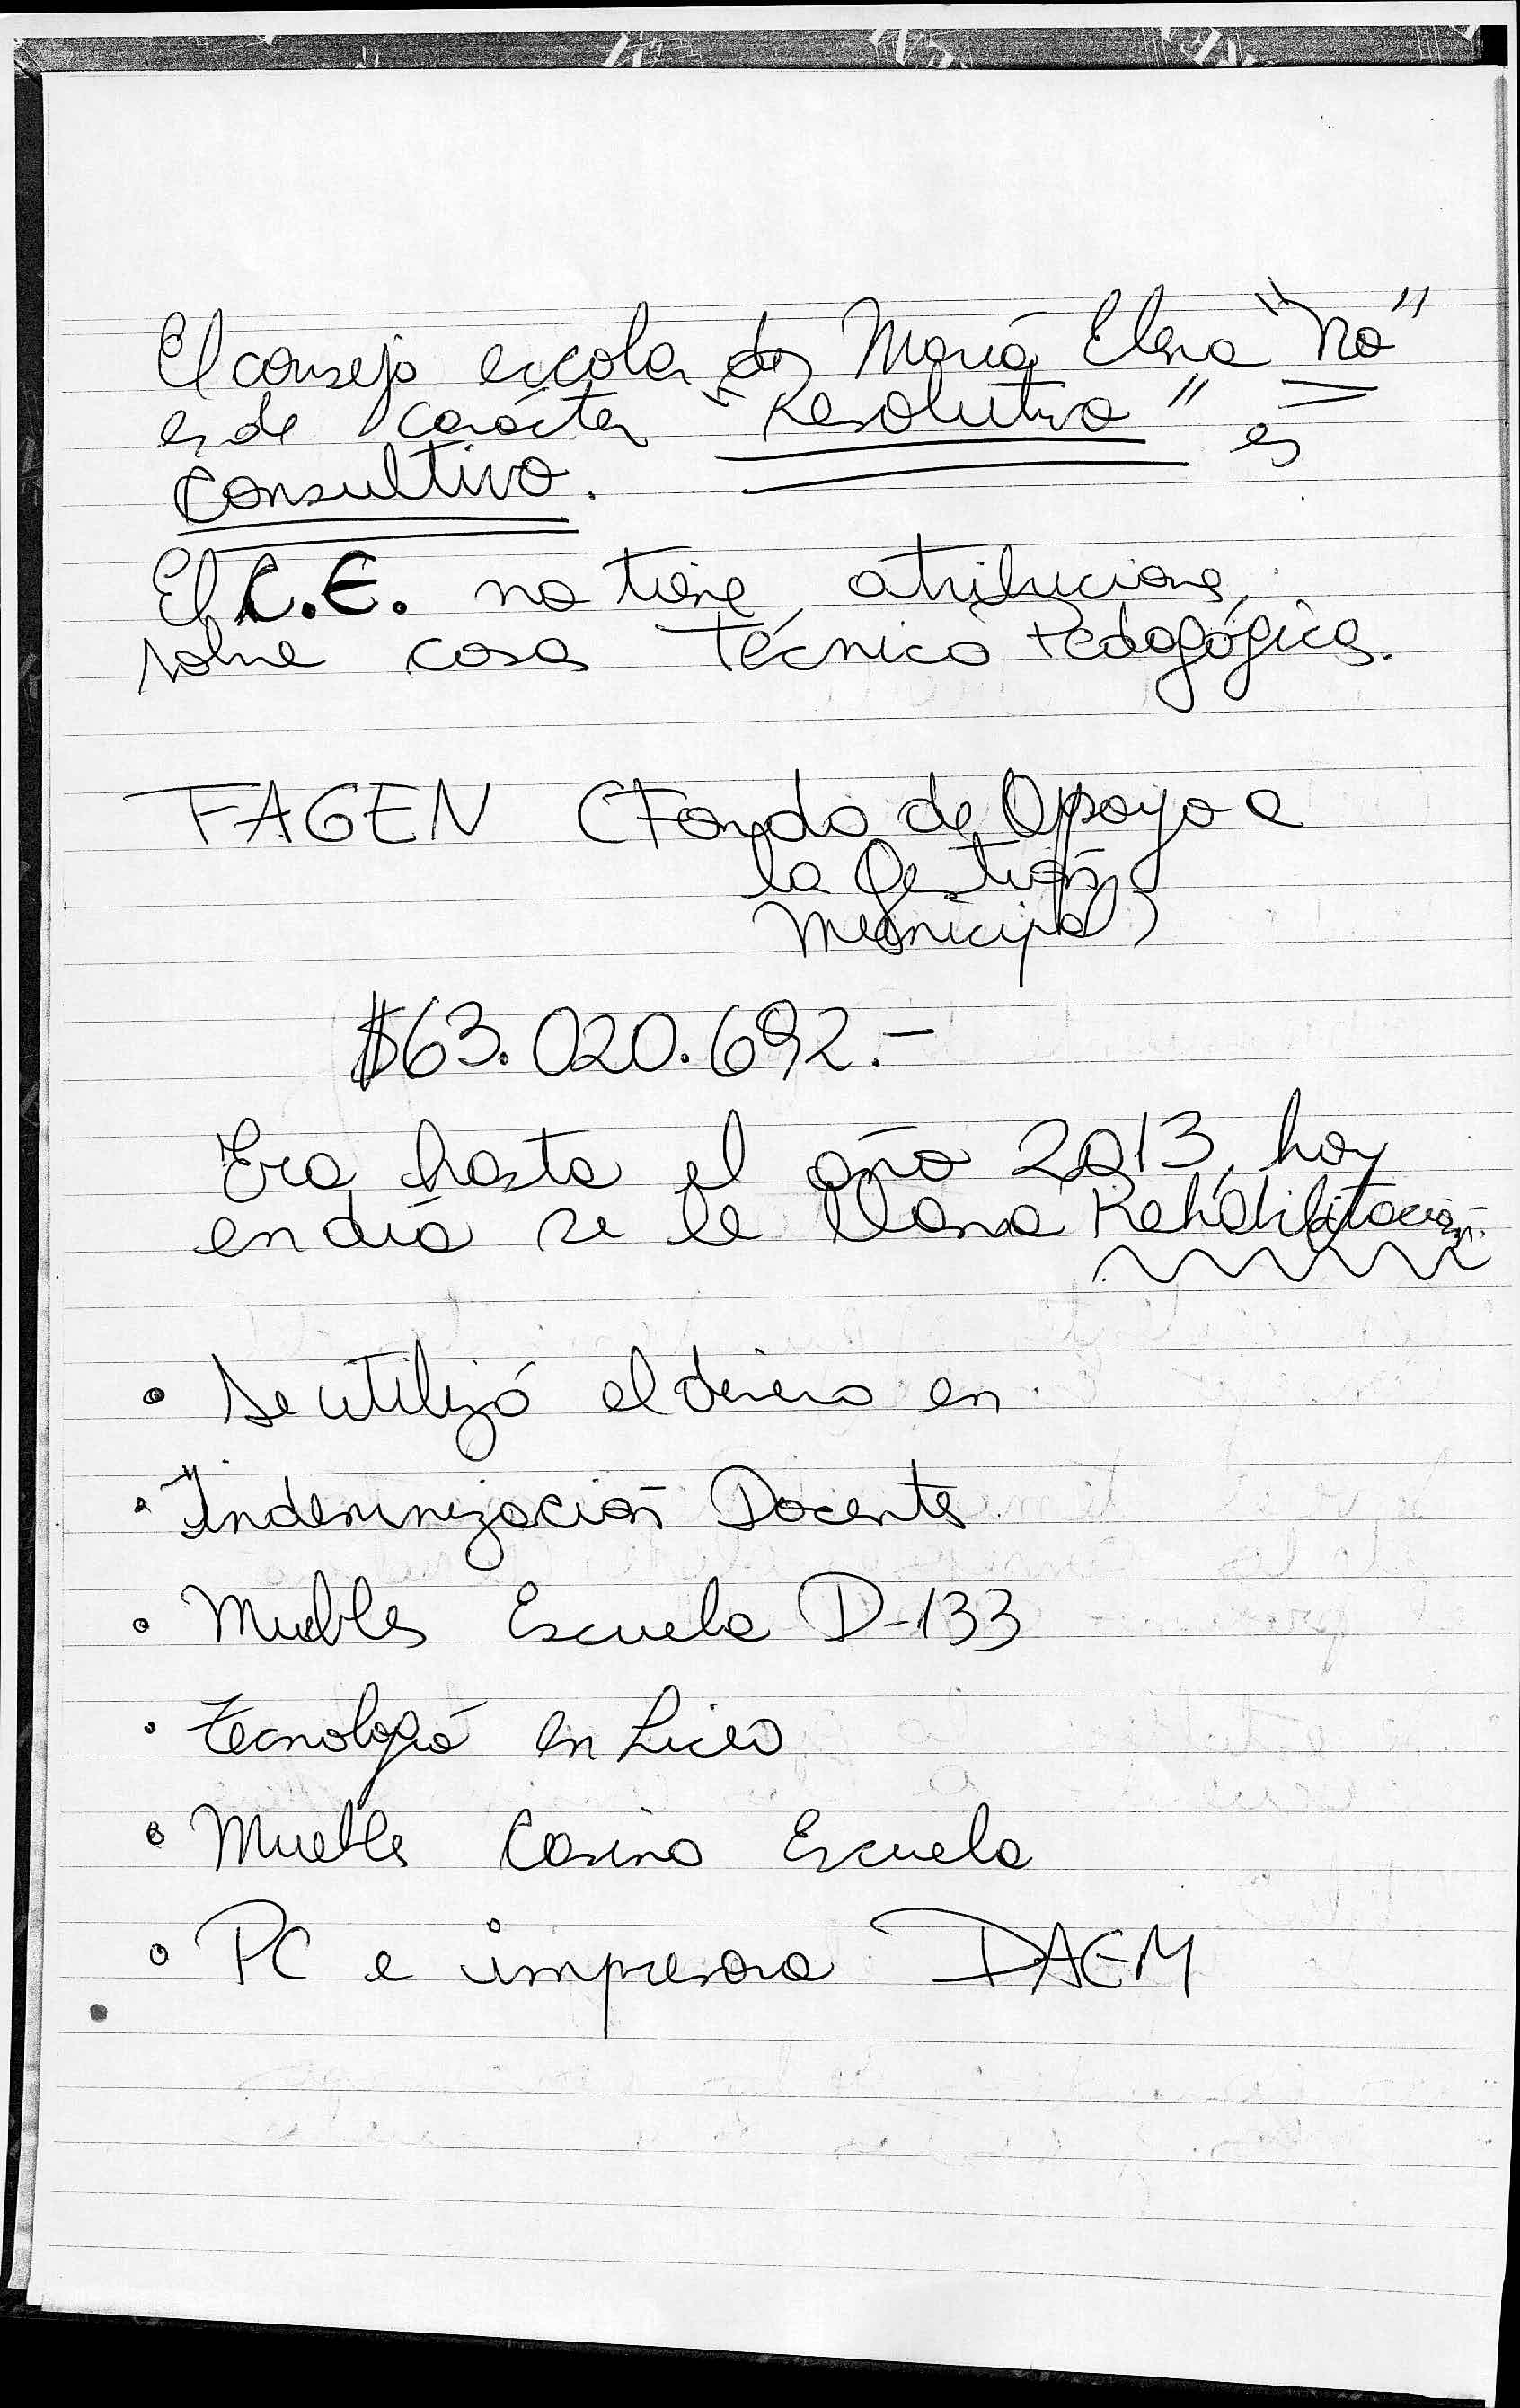 El consejo escolar de María Elena "No"
es de carácter "Resolutivo" es
Consultivo.
El C.E. no tiene atribuciones
sobre cosas Técnico Pedagógicas.
FAGEN (Fondo de Apoyo a
la Gestión
Municipal)
$63.020.692.-
Era hasta el año 2013, hoy
en día se le llama Rehabilitación.
• Se utilizó el dinero en.
• Indemnización Docente
• Muebles Escuela D-133
• Tecnología en Liceo
• Muebles Casino Escuela
• PC e impresora DAEM